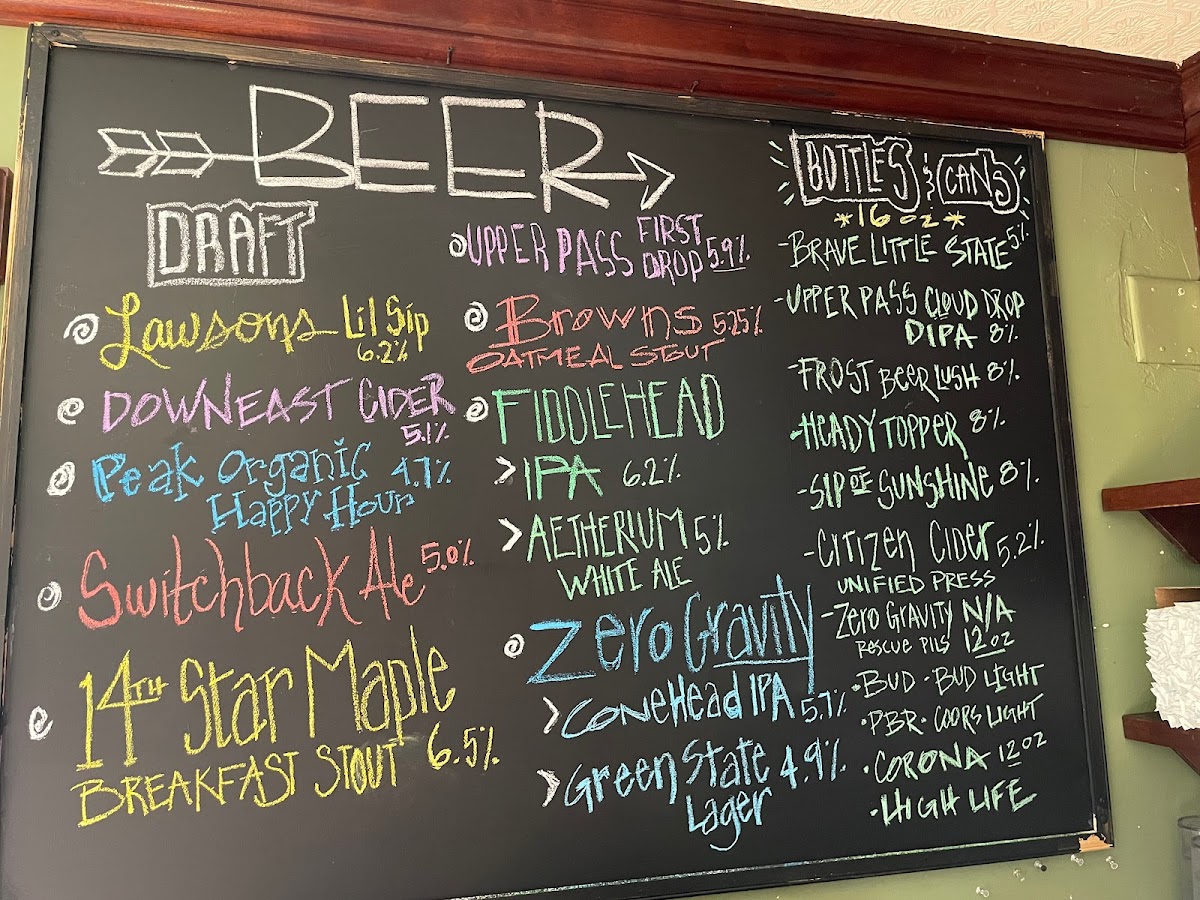 BEER
DRAFT
Lawsons Lil Sip
6.2%
DOWNEAST CIDER
5.1%
Peak Organic 4.7%
Happy Hour
Switchback Ale 5.0%
14TH Star Maple
BREAKFAST STOUT 6.5%
UPPER PASS FIRST
DROP 5.9%
Browns 5.25%
OATMEAL STOUT
FIDDLEHEAD
IPA 6.2%
AETHERIUM 5%
WHITE ALE
Zero Gravity
CONEHEAD IPA 5.7%
Green State 4.9%
Lager
BOTTLES & CANS
*16oz*
-BRAVE LITTLE STATE 5%
-UPPER PASS CLOUD DROP
DIPA 8%
-FROST BEER LUSH 8%
-HEADY TOPPER 8%
-SIP OF SUNSHINE 8%
-CITIZEN CIDER 5.2%
UNIFIED PRESS
-ZERO GRAVITY N/A
RESCUE PILS 12oz
·BUD ·BUD LIGHT
·PBR ·COORS LIGHT
·CORONA 12oz
·HIGH LIFE